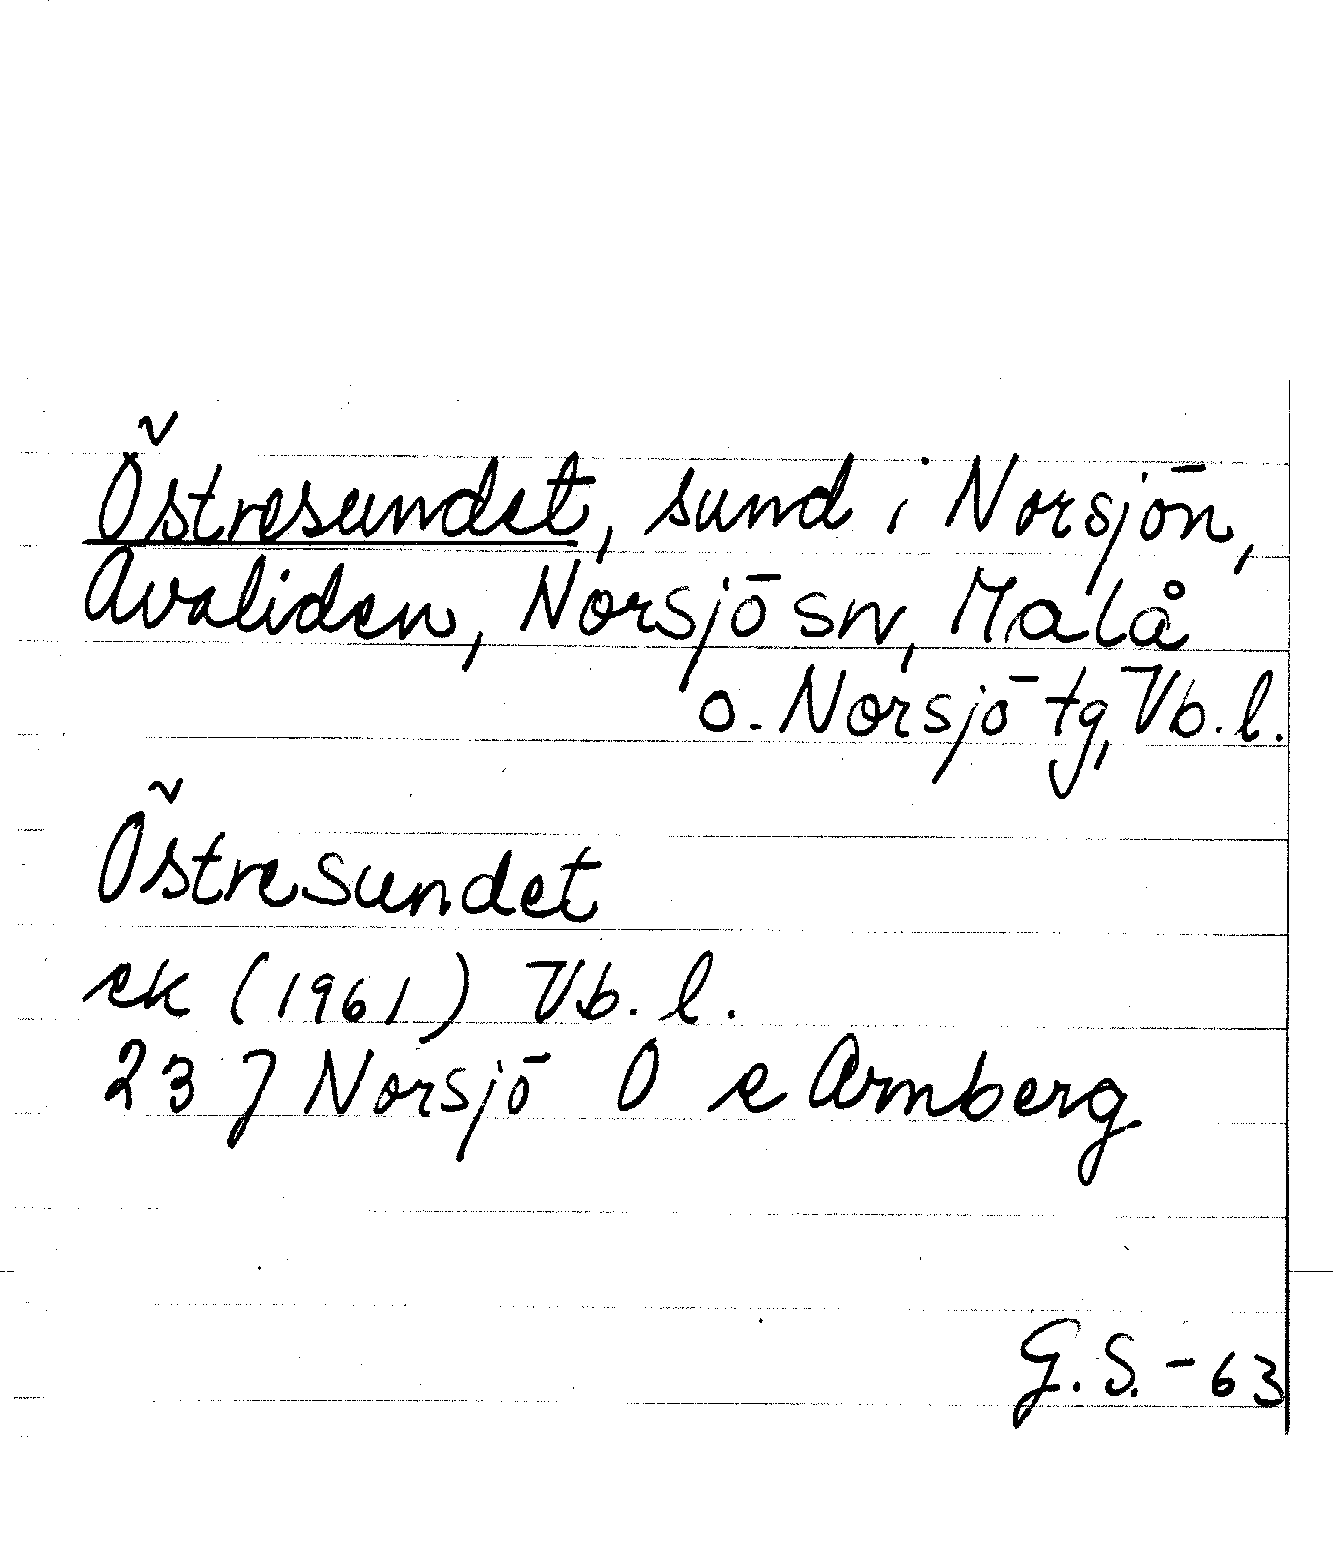 Östresundet, sund i Norsjön,
Avaliden, Norsjö sn, Malå
o. Norsjö tg, Vb. l.
Östresundet
ek (1961) Vb. l.
23 J Norsjö O e Armberg
G. S. - 63